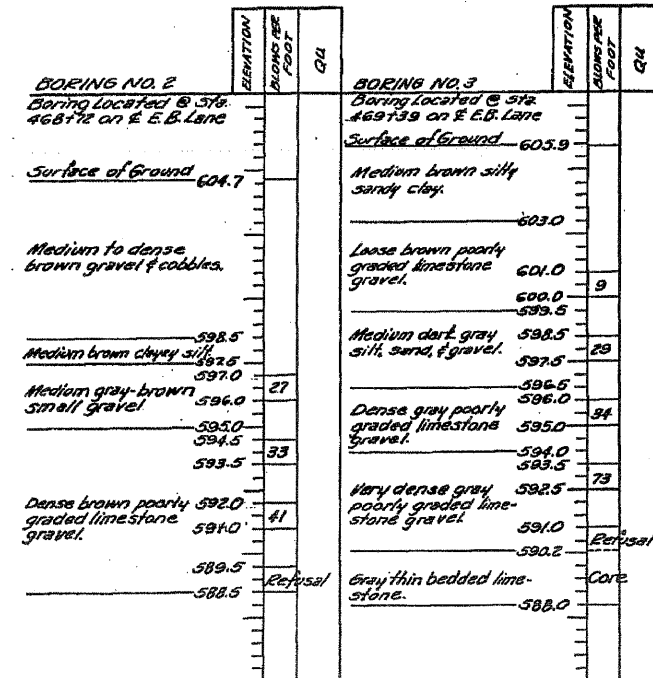 BORING NO. 2
ELEVATION
BLOWS PER FOOT
QU
Boring Located @ Sta.
468+72 on ℄ E.B. Lane
Surface of Ground 604.7
Medium to dense
brown gravel & cobbles.
598.5
Medium brown clayey silt.
597.5
597.0
27
Medium gray-brown
small gravel
596.0
595.0
594.5
33
593.5
Dense brown poorly
graded limestone
gravel.
592.0
41
591.0
589.5
Refusal
588.5
BORING NO. 3
ELEVATION
BLOWS PER FOOT
QU
Boring Located @ Sta.
469+39 on ℄ E.B. Lane
Surface of Ground 605.9
Medium brown silty
sandy clay.
603.0
Loose brown poorly
graded limestone
gravel.
601.0
9
600.0
599.5
Medium dark gray
silt, sand, & gravel.
598.5
29
597.5
596.5
596.0
Dense gray poorly
graded limestone
gravel.
34
595.0
594.0
593.5
73
Very dense gray
poorly graded lime-
stone gravel.
592.5
591.0
Refusal
590.2
Gray thin bedded lime-
stone.
Core
588.0